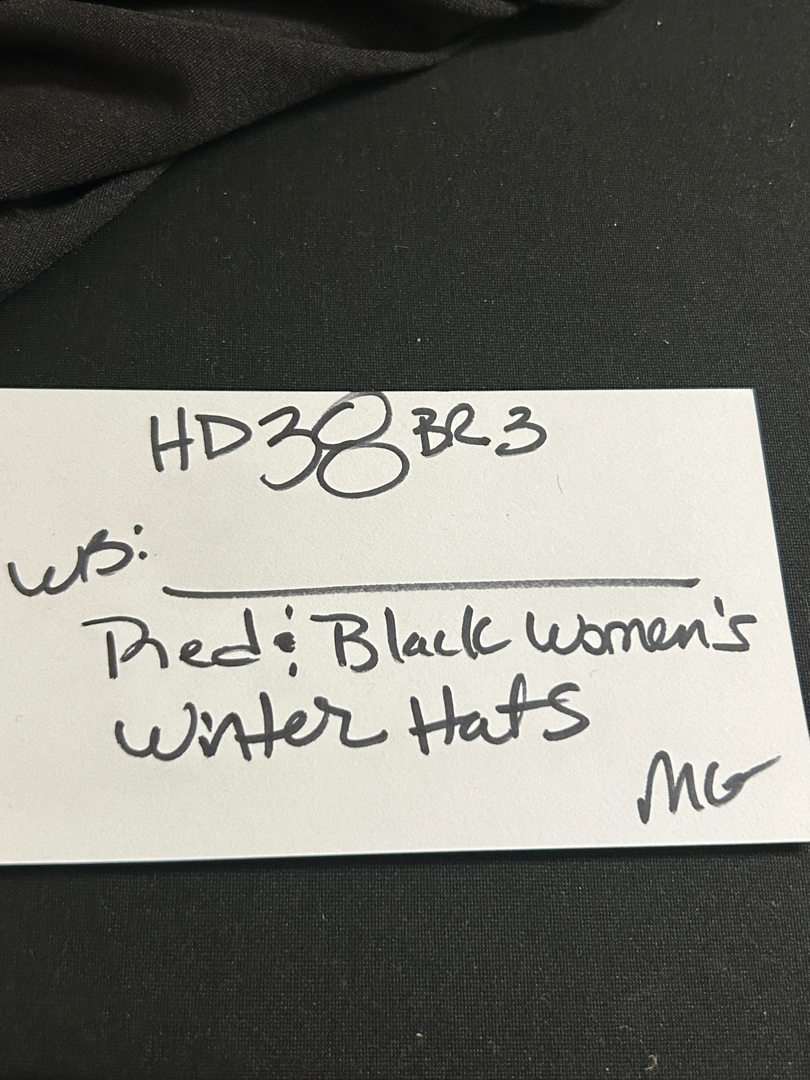 HD38 BR3
WB:
Red & Black Women's
Winter Hats
MG